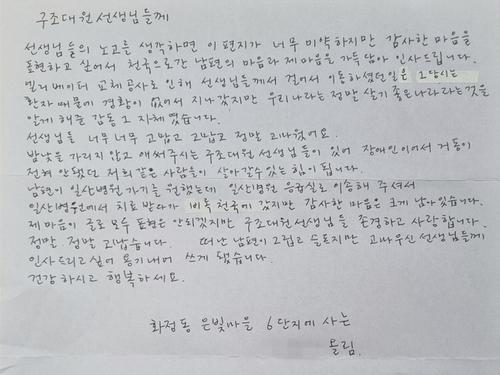 구조대원선생님들께
선생님들의 노고를 생각하면 이 편지가 너무 미약하지만 감사한 마음을
표현하고 싶어서 천국으로간 남편의 마음과 제 마음을 가득담아 인사드립니다.
엘리베이터 교체공사로 인해 선생님들께서 걸어서 이동하셨던일은 그당시는
환자 때문에 경황이 없어서 지나갔지만 우리나라는 정말 살기좋은나라라는것을
알게 해준 감동 그 자체였습니다.
선생님들 너무너무 고맙고 고맙고 정말 고마웠어요.
밤낮을 가리지 않고 애써주시는 구조대원 선생님들이 있어 장애인이어서 거동이
전혀 안됐던 저희같은 사람들이 살아갈수있는 힘이 됩니다.
남편이 일산병원 가기를 원했는데 일산병원 응급실로 이송해 주셔서
일산병원에서 치료받다가 비록 천국에 갔지만 감사한 마음은 크게 남아있습니다.
제 마음이 글로 모두 표현은 안되겠지만 구조대원선생님들 존경하고 사랑합니다.
정말. 정말 고맙습니다. 떠난 남편이 그립고 슬프지만 고마우신 선생님들께
인사드리고싶어 용기내어 쓰게 됐습니다.
건강하시고 행복하세요.
화정동 은빛마을 6단지에 사는
올림.